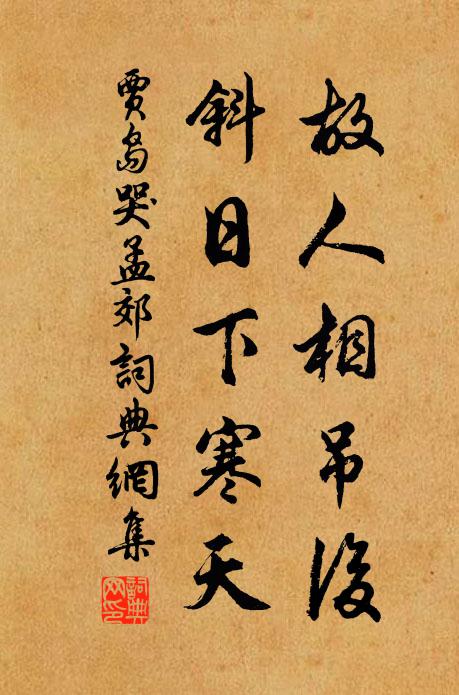 故人相吊後
斜日下寒天
賈島哭孟郊詞典網集
詞典网印